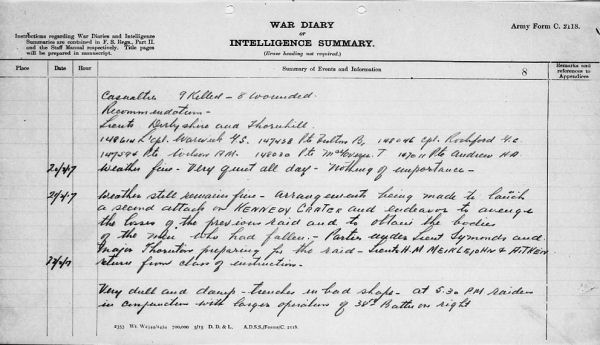 WAR DIARY
OF
INTELLIGENCE SUMMARY.
(Erase heading not required.)
Army Form C. 2118.
Instructions regarding War Diaries and Intelligence
Summaries are contained in F. S. Regs., Part II.
and the Staff Manual respectively. Title pages
will be prepared in manuscript.
Place Date Hour Summary of Events and Information 8 Remarks and
references to
Appendices
Casualties 9 Killed - 8 wounded.
Recommendation -
Lieuts Derbyshire and Thornhill.
Cpl. Warwick Pte Fulton B, 148046 Cpl. Rochford
Pte Wilson Pte T Pte Andrew
Weather fine - Very quiet all day - Nothing of importance -
Weather still remains fine - arrangements being made to
a second attack on KENNEDY CRATER and endeavor to avenge
the losses of the previous raid and to obtain the bodies
of the men who had fallen - Parties under Lieut Symonds and
Major Thornton preparing for the raid - Lieuts H.M MEIKLEJOHN & AITKEN
return from class of instruction -
Very dull and damp - trenches in bad shape - at 5.30 PM raiders
in conjunction with larger operation of 38th Batt on right
A.D.S.S./Forms/C. 2118.